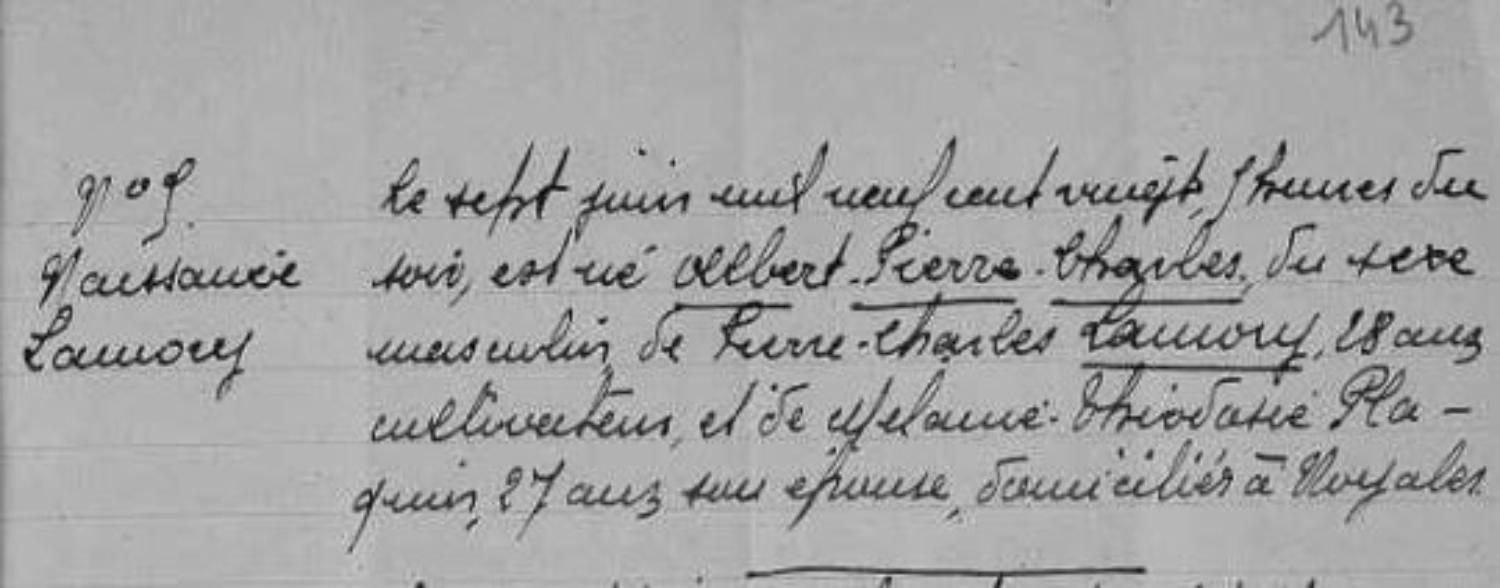 143
N° 9.
Naissance
Lamory
Le sept juin mil neuf cent vingt, heures du
soir, est né Albert-Pierre-Charles, du sexe
masculin, de Pierre-Charles Lamory, 28 ans
cultivateur, et de Mélanie-Théodosie Pla-
quin, 27 ans son épouse, domiciliés à Noyales